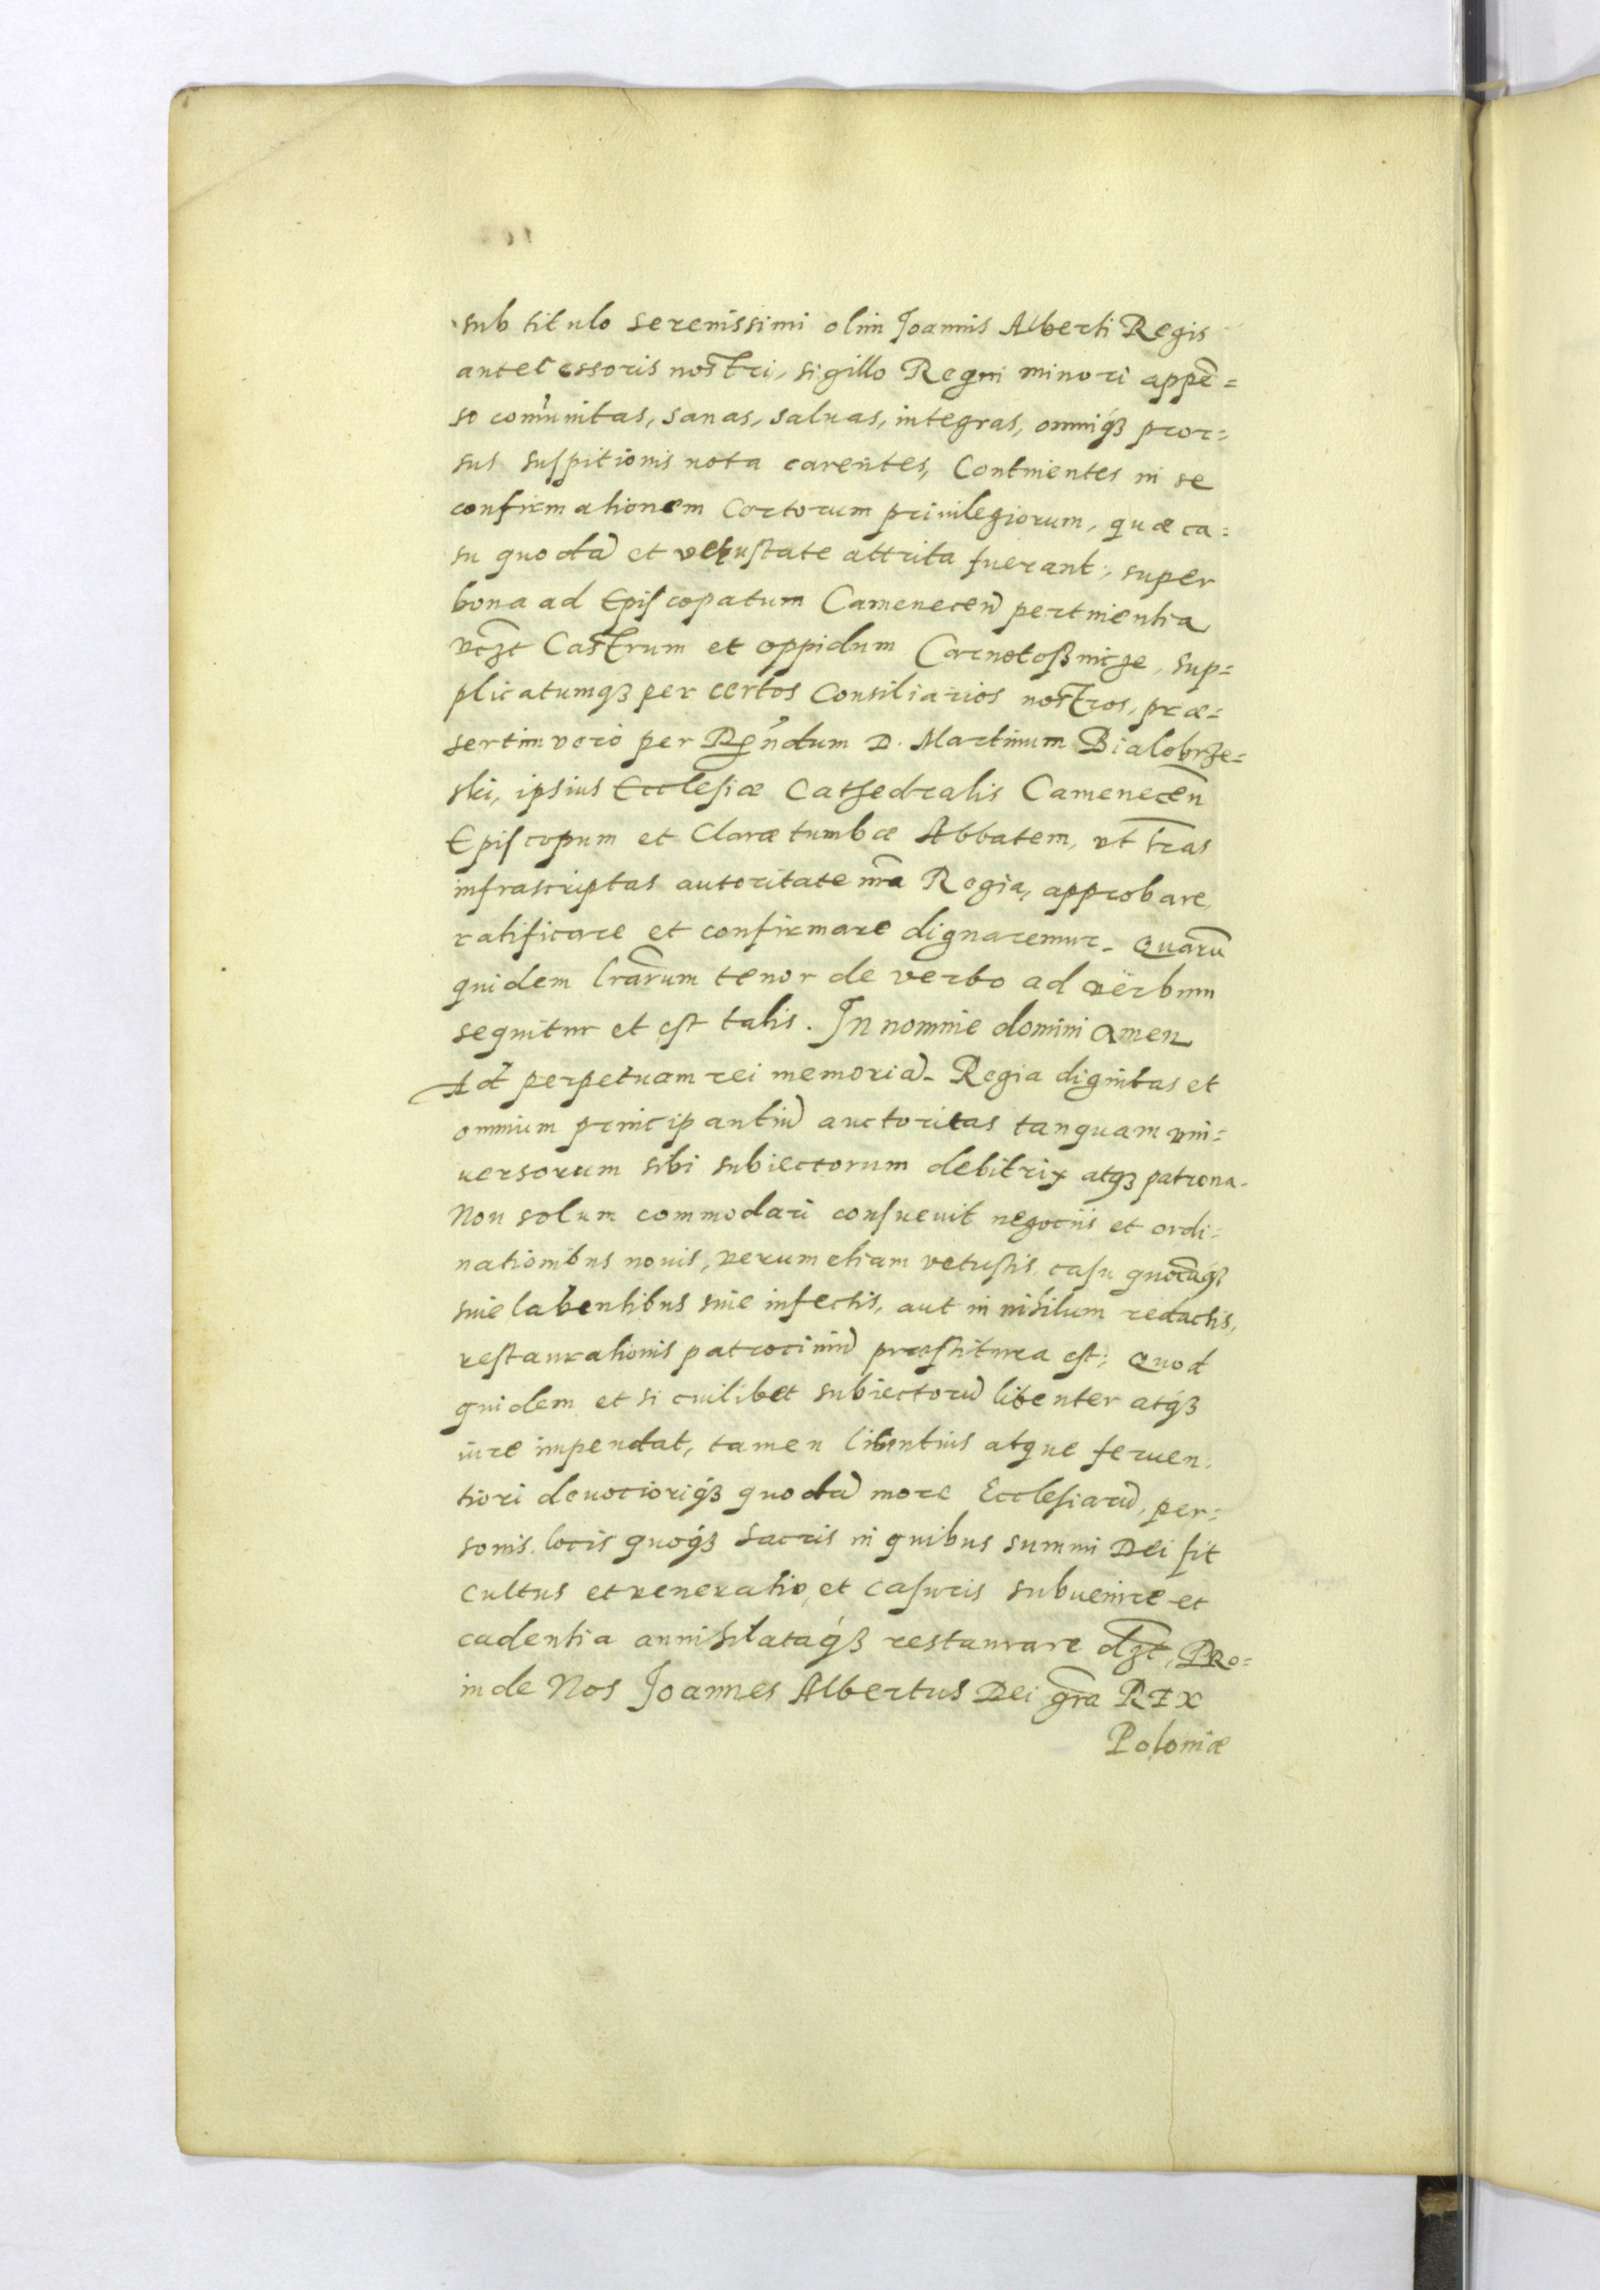 sub titulo serenissimi olim Joannis Alberti Regis
antecessoris nostri, sigillo Regni minori appē=
so com̃unitas, sanas, saluas, integras, omniq́ꝫ pror=
sus suspitionis nota carentes, Continentes in se
confirmationem certorum priuilegiorum, quæ ca=
su quodã et vetustate attrita fuerant, super
bona ad Episcopatum Camenecen̄ pertinentia
vt̄zt Castrum et oppidum Carnokoßnicze, sup=
plicatumqꝫ per certos Consiliarios nostros, præ=
sertim vero per Rẽndum D. Martinum Bialobrze=
ski, ipsius Ecclesiæ Cathedralis Camenecen̄
Episcopum et Claræ tumbæ Abbatem, vt l̄ras
infrascriptas autoritate nr̄a Regia, approbare,
ratificare et confirmare dignaremur. Quarū
quidem l̄rarum tenor de verbo ad verbum
sequitur et est talis. In nomine domini amen
Ad perpetuam rei memoriã. Regia dignitas et
omnium principantiũ auctoritas tanquam vni=
uersorum sibi subiectorum debitrix atqꝫ patrona.
Non solum commodari consueuit negociis et ordi=
nationibus nouis, verum etiam vetustis casu quocūq́ꝫ
siue labentibus siue infectis, aut in nihilum redactis,
restaurationis patrociniũ præstitura est; Quod
quidem et si cuilibet subiectorũ libenter atq́ꝫ
iure impendat, tamen libentius atque feruen=
tiori deuotioriq́ꝫ quodã more Ecclesiarũ, per=
sonis locis quoq́ꝫ sacris in quibus summi Dei fit
cultus et veneratio, et casuris subuenire et
cadentia annihilataq́ꝫ restaurare d̄zt, Pro=
inde Nos Joannes Albertus Dei gr̄a REX
Poloniæ